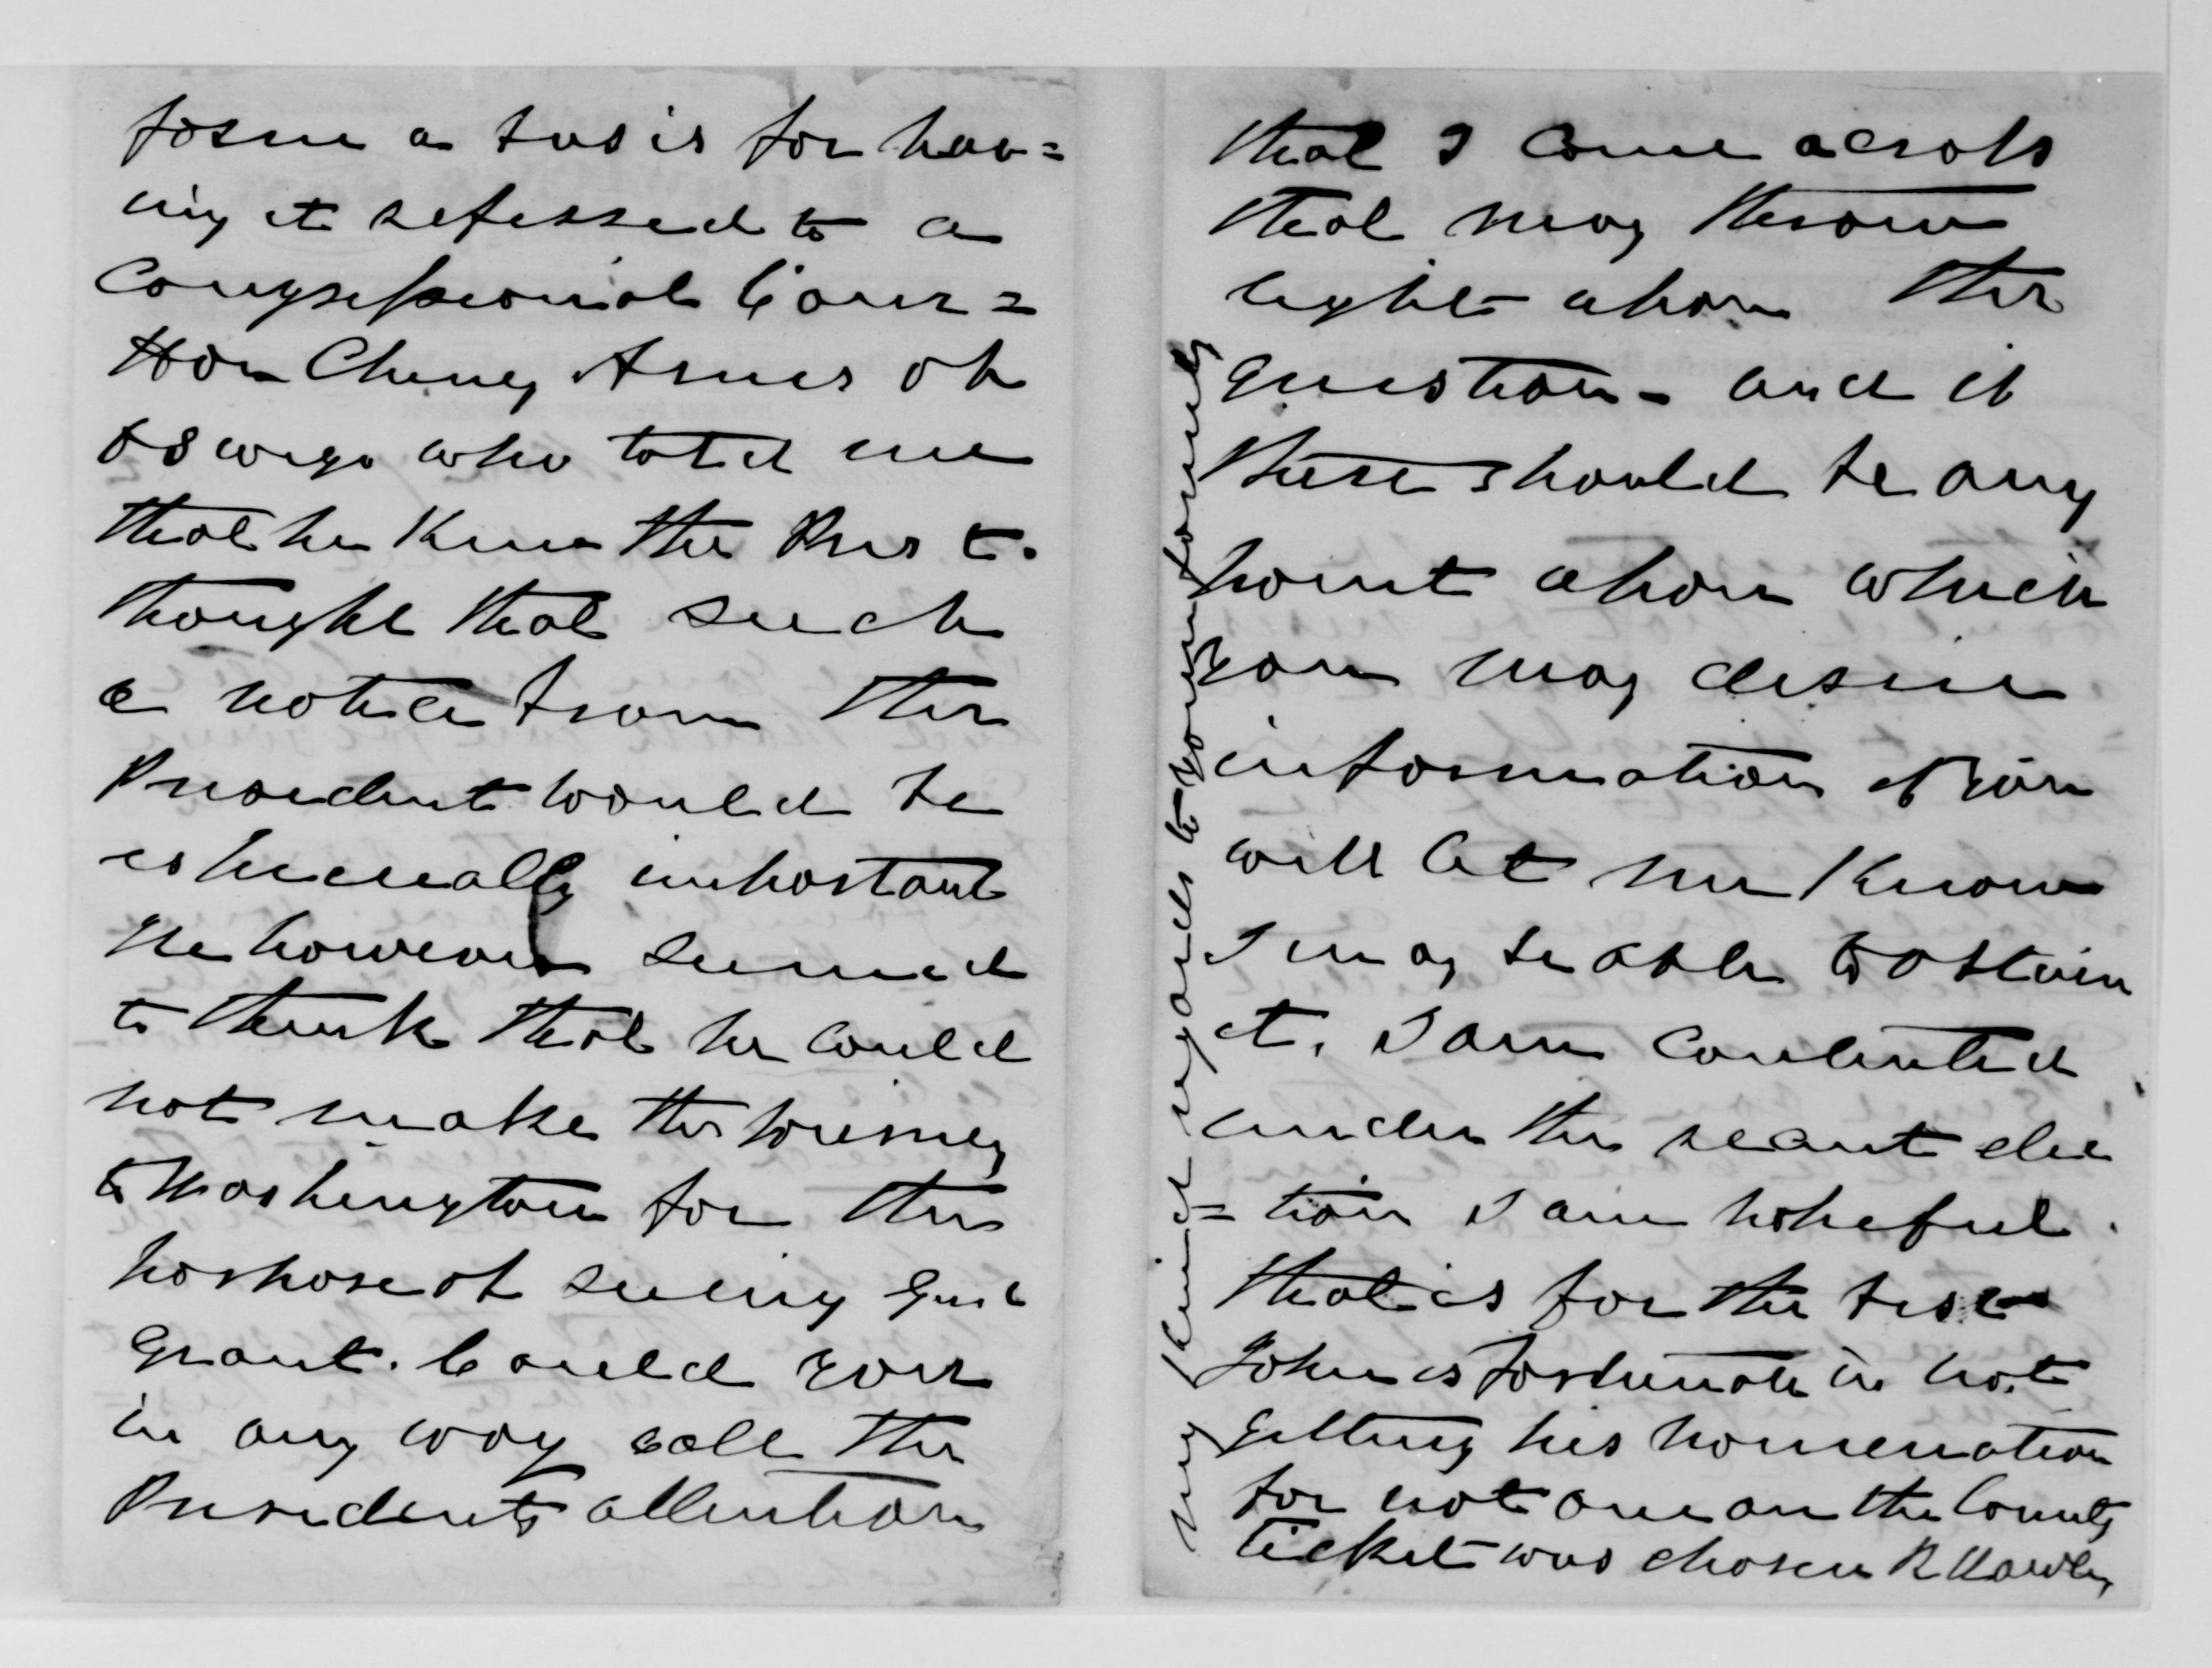 form a basis for hav=
ing it referred to a
Congressional Com=
Hon Cheney Ames of
Oswego who told me
that he knew the Prest.
thought that such
a notice from the
President would be
especially important
He however seemed
to think that he could
not make the journey
to Washington for the
purpose of seeing Genl
Grant. Could you
in any way call the
Presidents attention
that I come across
that may throw
light upon the
question - and if
there should be any
point upon which
you may desire
information if you
will let me know
I may be able to obtain
it. I am contented
under the recent elec
= tion I am hopeful
that is for the best
John is fortunate in not
getting his nomination
for not one on the County
ticket was chosen R Hawley
my kind regards to your family